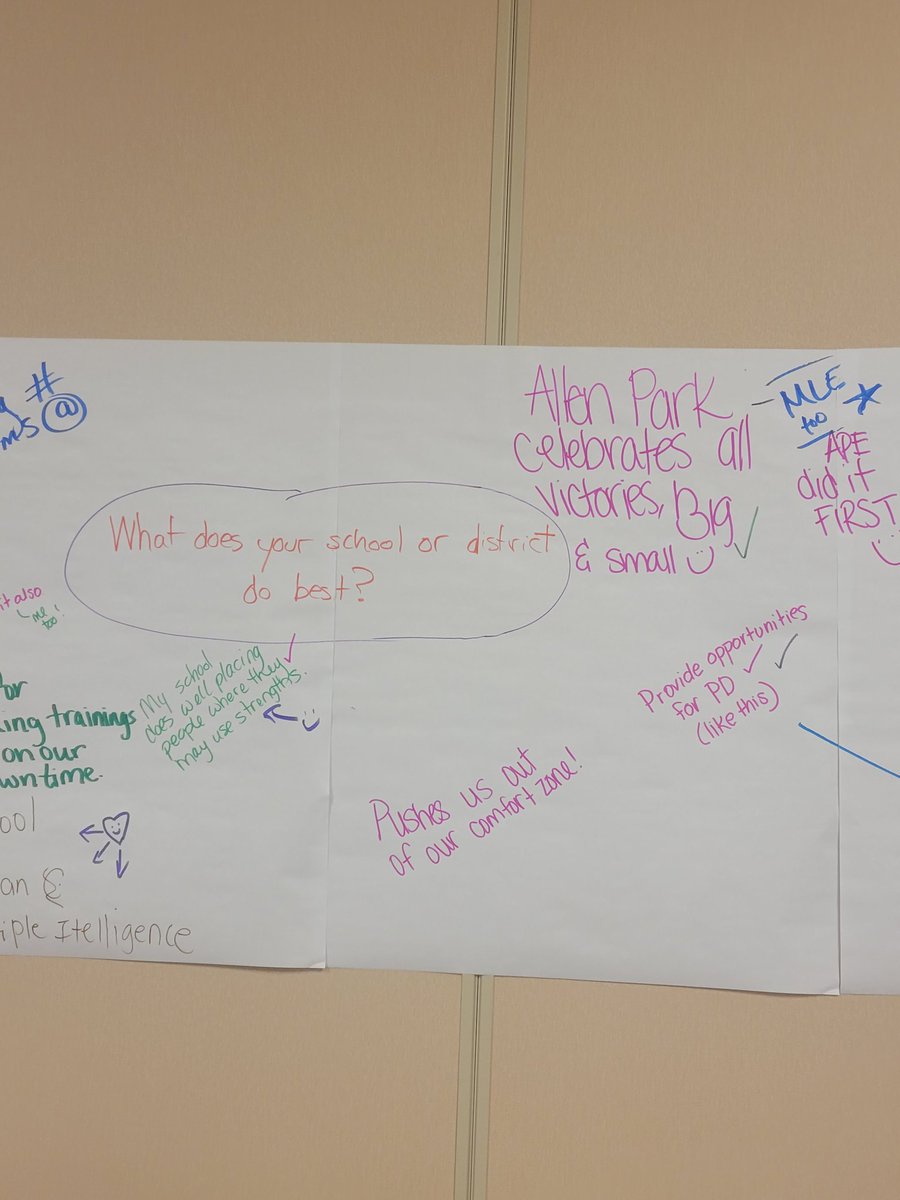 #
@
What does your school or district
do best?
Allen Park
celebrates all
victories, Big
& small
MLE
too
APE
did it
FIRST
it also
me
too!
My school
does well placing
people where they
may use strengths.
trainings
on our
time.
Provide opportunities
for PD
(like this)
Pushes us out
of our comfort zone!
Itelligence